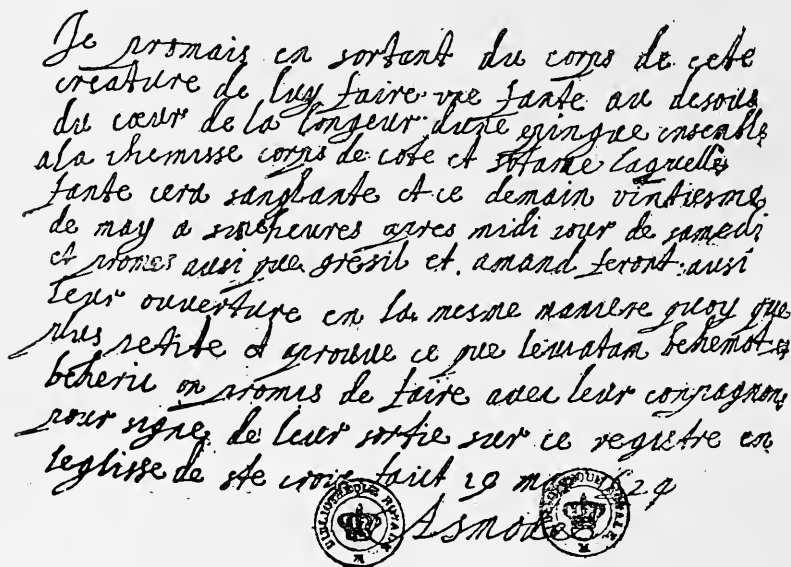 Je promais en sortant du corps de cete
creature de luy faire une fante au desous
du cœur de la longeur dune epingue ensenble
a la chemisse corps de cote et sotane laquelle
fante cera sanglante et ce demain vintiesme
de may a sinc heures apres midi jour de samedi
et promes ausi que gresil et amand feront ausi
leur ouverture en la mesme maniere quoy que
plus petite et aprouve ce que leuiatam behemot et
beherie on promis de faire avec leur conpagnon
pour signe de leur sortie sur ce registre en
leglisse de ste crois faict 19 may
Asmodee
BIBLIOTHEQUE ROYALE